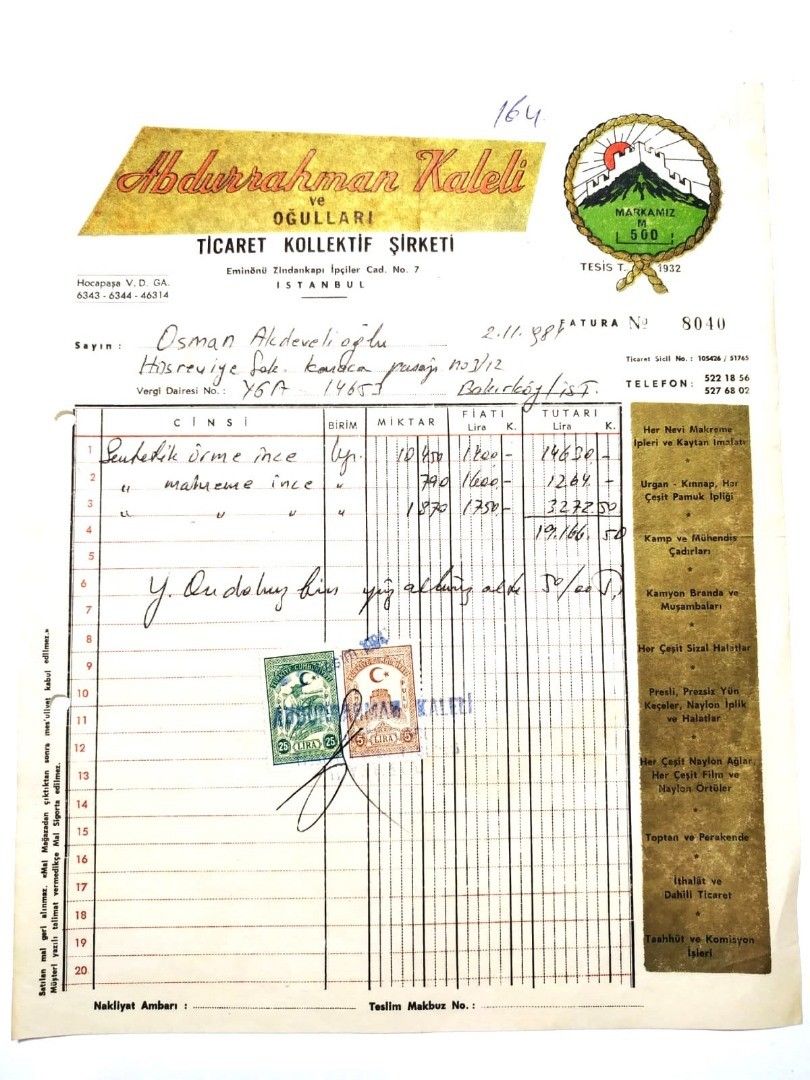 164
Abdurrahman Kaleli
ve
OĞULLARI
TİCARET KOLLEKTİF ŞİRKETİ
Eminönü Zindankapı İpçiler Cad. No. 7
İSTANBUL
Hocapaşa V. D. GA.
6343 - 6344 - 46314
MARKAMIZ
M
500
TESİS T. 1932
FATURA No 8040
Sayın : Osman Akdevelioğlu 2.11.981
Hüsreviye Sok. Karaca pasajı no 3/12
Vergi Dairesi No. : YGA - 14653 Bakırköy/İST.
Ticaret Sicil No. : 105426 / 51765
TELEFON : 522 18 56
527 68 02
CİNSİ BİRİM MİKTAR FİATI Lira K. TUTARI Lira K.
1 Sentetik örme ince 10 450 1400 - 14630 -
2 " mahreme ince " 790 1600 - 1264 -
3 " " " " 1 870 1750 - 3272 50
4 19.166. 50
5
6 Y. Ondokuz bin yüz altmış altı 50/00
7
8
9
10
11
12
13
14
15
16
17
18
19
20
TÜRKİYE CUMHURİYETİ
25 LİRA 25
5 LİRA 5
ABDURRAHMAN KALELİ
Her Nevi Makreme
İpleri ve Kaytan İmalatı
Urgan - Kınnap, Her
Çeşit Pamuk İpliği
Kamp ve Mühendis
Çadırları
Kamyon Branda ve
Muşambaları
Her Çeşit Sizal Halatlar
Presli, Prezsiz Yün
Keçeler, Naylon İplik
ve Halatlar
Her Çeşit Naylon Ağlar,
Her Çeşit Film ve
Naylon Örtüler
Toptan ve Perakende
İthalât ve
Dahili Ticaret
Taahhüt ve Komisyon
İşleri
Satılan mal geri alınmaz. «Mal Mağazadan çıktıktan sonra mes'uliyet kabul edilmez.»
Müşteri yazılı talimat vermedikçe Mal Sigorta edilmez.
Nakliyat Ambarı :
Teslim Makbuz No. :